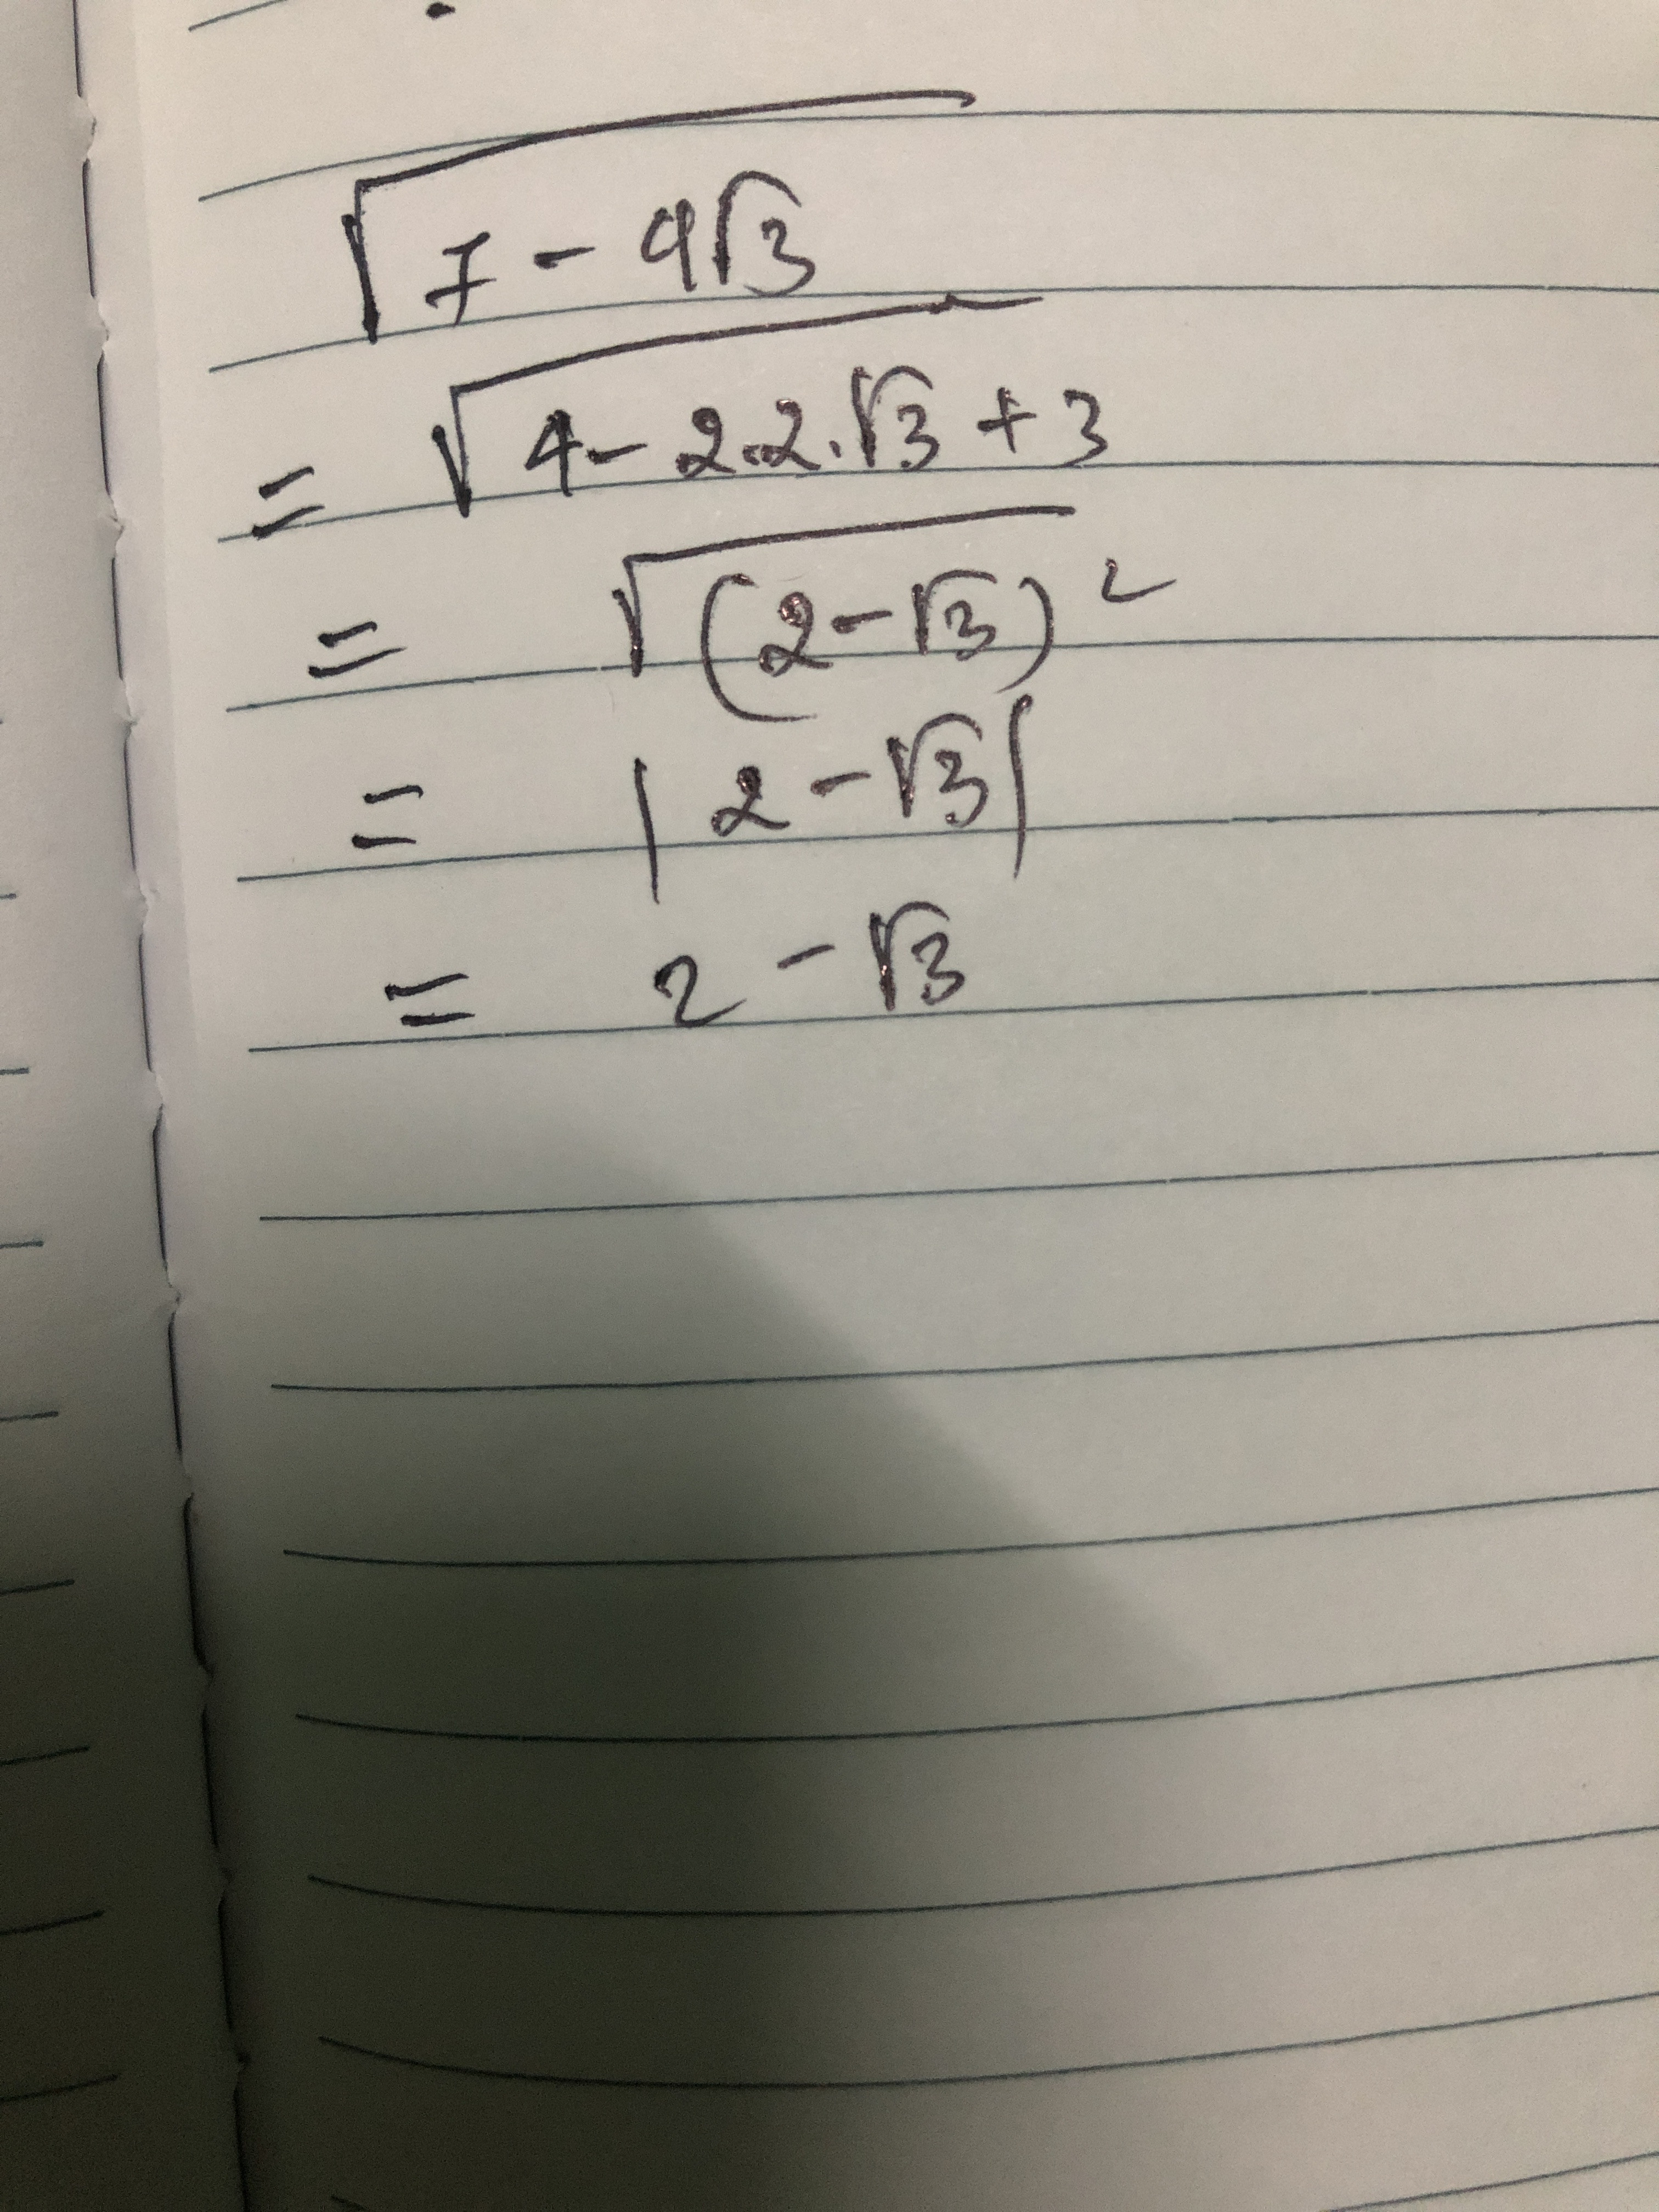 √(7 - 4√3)
= √(4 - 2.2.√3 + 3)
= √((2 - √3)²)
= |2 - √3|
= 2 - √3